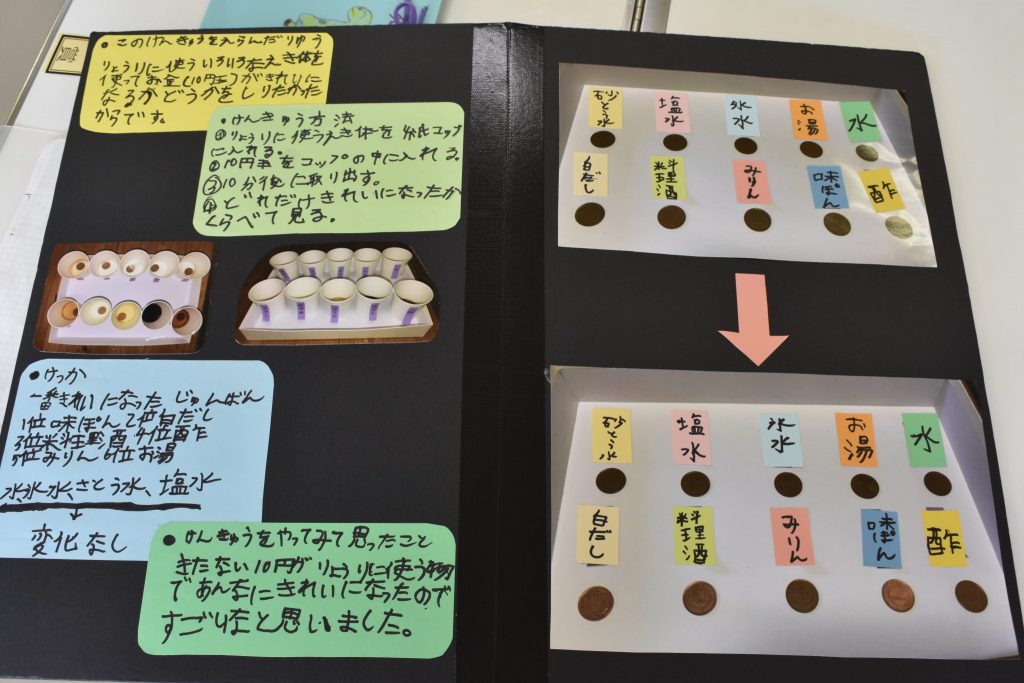 ・このけんきゅうをえらんだりゆう
りょうりに使ういろいろなえき体を
使ってお金(10円玉)がきれいに
なるかどうかをしりたかった
からです。
・けんきゅう方法
①りょうりに使うえき体を紙コップ
に入れる。
②10円玉をコップの中に入れる。
③10分後に取り出す。
④どれだけきれいになったか
くらべて見る。
・けっか
一番きれいになったじゅんばん
1位味ぽん2位白だし
3位料理酒4位酢
5位みりん6位お湯
水、氷水、さとう水、塩水
↓
変化なし
・けんきゅうをやってみて思ったこと
きたない10円がりょうりに使う物
であんなにきれいになったので
すごいなと思いました。
砂とう水 塩水 氷水 お湯 水
白だし 料理酒 みりん 味ぽん 酢
砂とう水 塩水 氷水 お湯 水
白だし 料理酒 みりん 味ぽん 酢